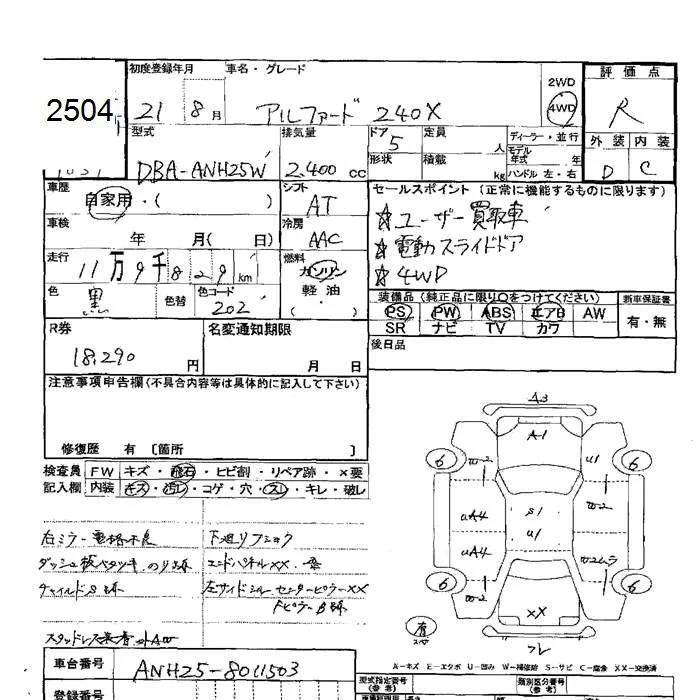 2504
初度登録年月 車名・グレード
21 8月 アルファード 240X
2WD
4WD
評価点
R
外装 内装
D C
型式 排気量 ドア 定員 ディーラー・並行
DBA-ANH25W 2,400cc 5 人
形状 積載 kg
モデル年式 年
ハンドル 左・右
車歴 シフト
自家用・( ) AT
セールスポイント(正常に機能するものに限ります)
☆ユーザー買取車
☆電動スライドドア
☆4WD
車検 冷房
年 月( 日) AAC
走行 燃料
11万9千829km ガソリン
軽油
( )
色 色替 色コード
黒 202
装備品(純正品に限り○をつけてください) 新車保証書
PS PW ABS エアB AW 有・無
SR ナビ TV カワ
後日品
R券 名変通知期限
18,290円 月 日
注意事項申告欄(不具合内容等は具体的に記入して下さい)
修復歴 有 [箇所 ]
検査員 FW キズ・飛石・ヒビ割・リペア跡・×要
記入欄 内装 キズ・汚レ・コゲ・穴・スレ・キレ・破レ
右ミラー電格不良
下廻りフショク
ダッシュ板ベタツキ のり跡
エンドパネルXX
左サイドシル センターピラーXX
スタッドレス装着
A3
A1
6 W-2 U1 6
UA4 S1 W-2
U1
UA4
6 W-2 XX 6
有
A-キズ E-エクボ U-凹み W-補修跡 S-サビ C-腐食 XX-交換済
車台番号 ANH25-8011503
登録番号
型式指定番号(参考) 類別区分番号(参考)